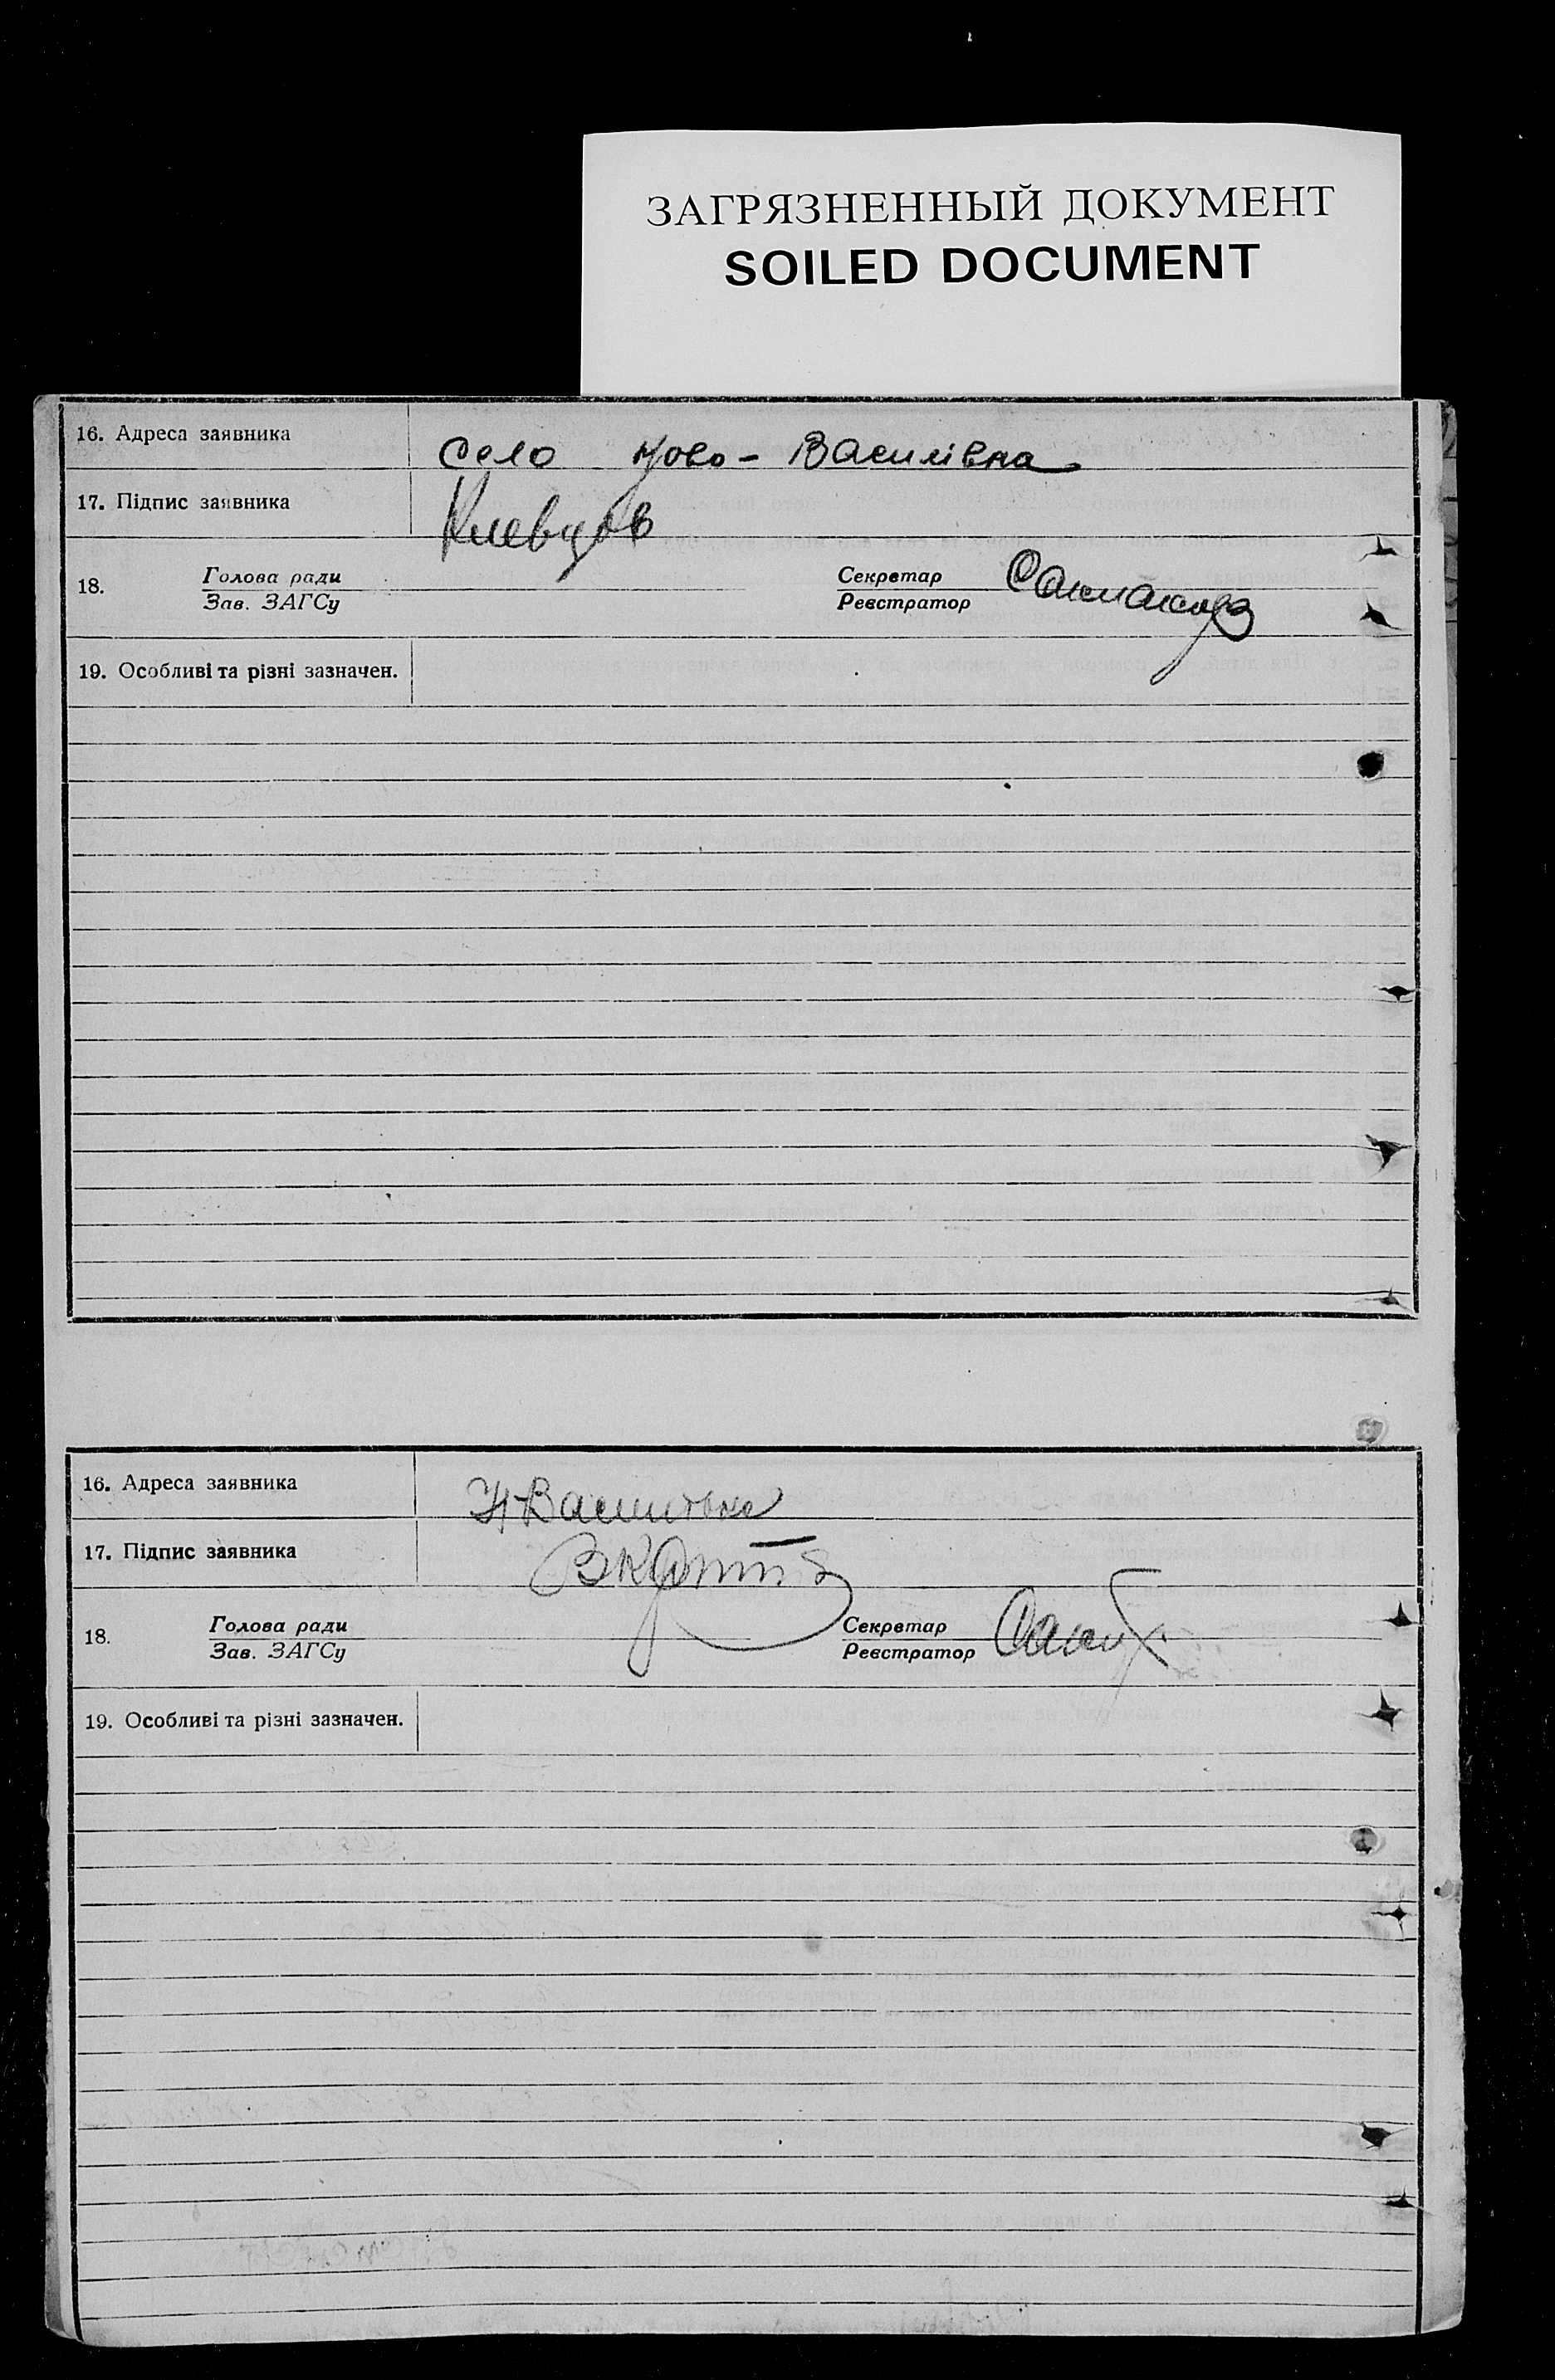 ЗАГРЯЗНЕННЫЙ ДОКУМЕНТ
SOILED DOCUMENT
16. Адреса заявника село Ново-Василівка
17. Підпис заявника Клевцов
18. Голова ради Секретар
Зав. ЗАГСу Реєстратор
19. Особливі та різні зазначен.
16. Адреса заявника Н-Василівка
17. Підпис заявника
18. Голова ради Секретар
Зав. ЗАГСу Реєстратор
19. Особливі та різні зазначен.